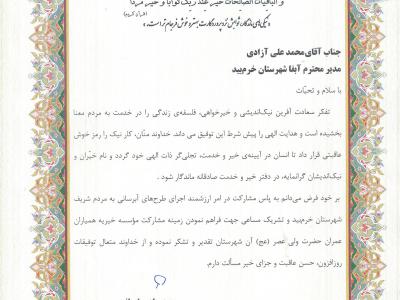 و الباقیات الصالحات خیر عند ربک ثوابا و خیر مردا
جناب آقای محمد علی آزادی
مدیر محترم آبفا شهرستان خرم‌بید
با سلام و تحیّات
تفکر سعادت آفرین نیک‌اندیشی و خیرخواهی، فلسفه‌ی زندگی را در خدمت به مردم معنا
بخشیده است و هدایت الهی را پیش شرط این توفیق می داند. خداوند منّان، کار نیک را رمز خوش
عاقبتی قرار داد تا انسان در آیینه‌ی خیر و خدمت، تجلی‌گر ذات الهی خود گردد و نام خیّران و
نیک‌اندیشان گرانمایه، در دفتر خیر و خدمت صادقانه ماندگار شود .
بر خود فرض می‌دانم به پاس مشارکت در امر ارزشمند اجرای طرح‌های آبرسانی به مردم شریف
شهرستان خرم‌بید و تشریک مساعی جهت فراهم نمودن زمینه مشارکت مؤسسه خیریه همیاران
عمران حضرت ولی عصر (عج) آن شهرستان تقدیر و تشکر نموده و از خداوند متعال توفیقات
روزافزون، حسن عاقبت و جزای خیر مسألت دارم.